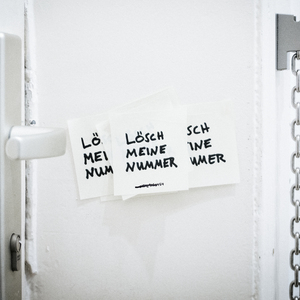 LÖ
MEI
NUM
LÖSCH
MEINE
NUMMER
SCH
INE
MER